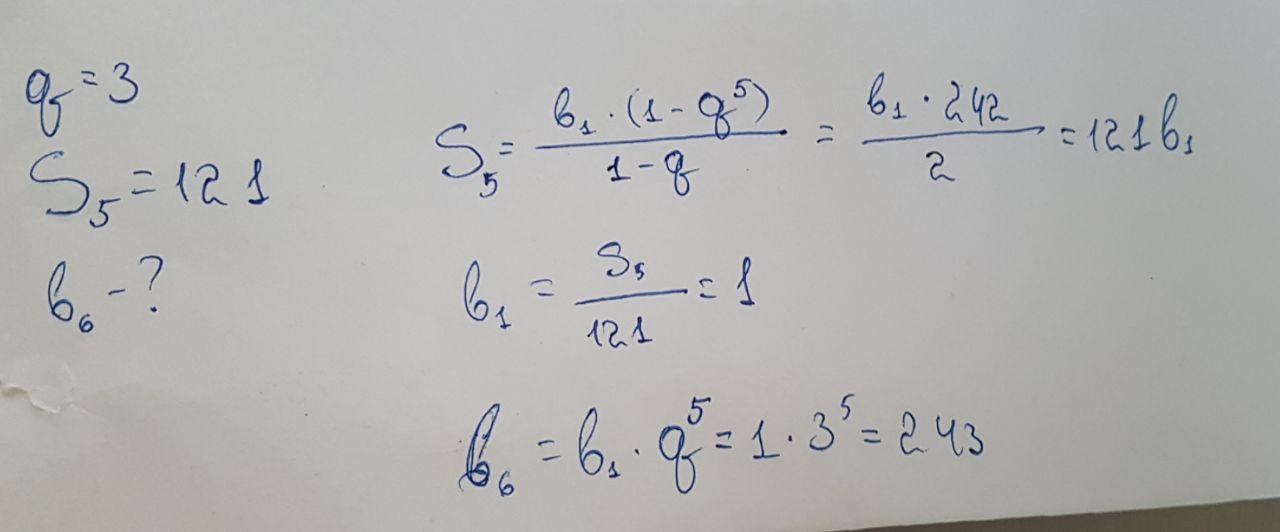 q = 3
S₅ = 121
b₆ - ?
S₅ = b₁ · (1 - q⁵) / 1 - q = b₁ · 242 / 2 = 121 b₁
b₁ = S₅ / 121 = 1
b₆ = b₁ · q⁵ = 1 · 3⁵ = 243